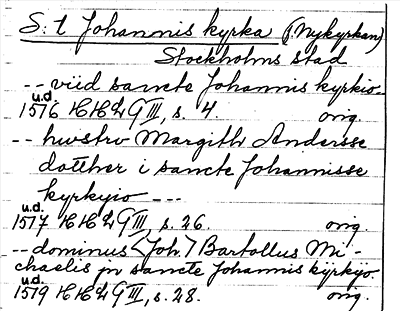 S:t Johannis kyrka (Nykyrkan)
Stockholms stad
-- viid sancte Johannis kyrkio-
u.d.
1516 HH2 G III, s. 4. orig.
-- hwstrv Margith Andersse
dotther i sancte Johannisse
kyrkyio ---
u.d.
1517 HH2 G III, s. 26. orig.
-- dominus <Joh.> Bartollus Mi-
chaelis pn sancte Johannis kyrkyo-
u.d.
1519 HH2 G III, s. 28. orig.